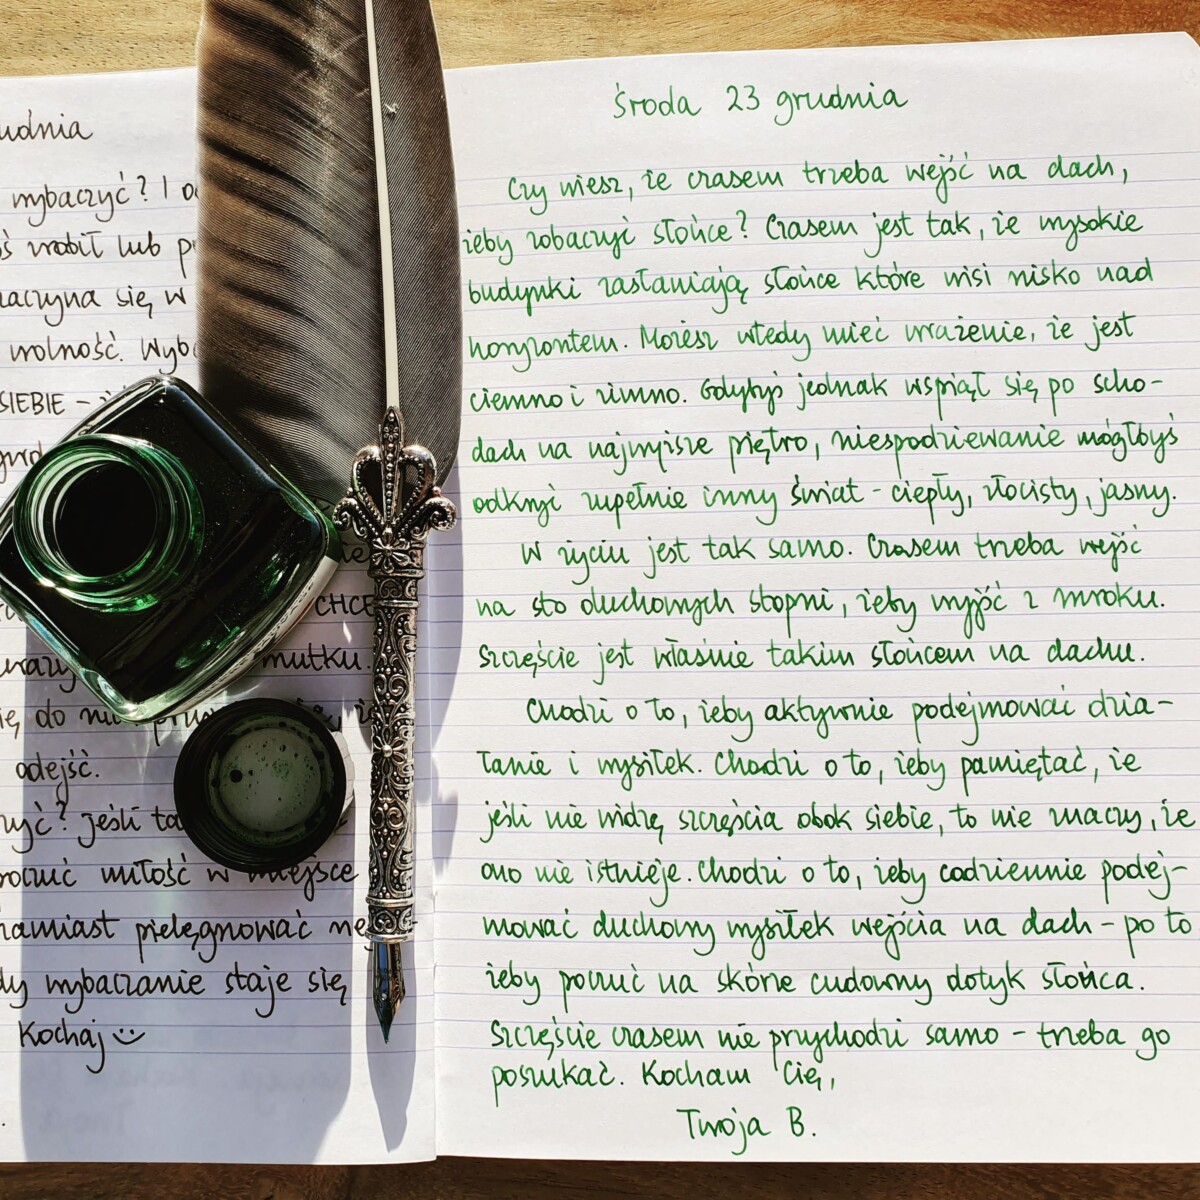 udnia
wybaczyć? I
zrobił lub
zaczyna się w
wolność.
SIEBIE –
CHCE
smutku.
do
odejść.
? Jeśli
miłość w miejsce
zamiast pielęgnować
wybaczanie staje się
Kochaj
Środa 23 grudnia
Czy wiesz, że czasem trzeba wejść na dach,
żeby zobaczyć słońce? Czasem jest tak, że wysokie
budynki zasłaniają słońce które wisi nisko nad
horyzontem. Możesz wtedy mieć wrażenie, że jest
ciemno i zimno. Gdybyś jednak wspiął się po scho-
dach na najwyższe piętro, niespodziewanie mógłbyś
odkryć zupełnie inny świat – ciepły, złocisty, jasny.
W życiu jest tak samo. Czasem trzeba wejść
na sto duchowych stopni, żeby wyjść z mroku.
Szczęście jest właśnie takim słońcem na dachu.
Chodzi o to, żeby aktywnie podejmować dzia-
łanie i wysiłek. Chodzi o to, żeby pamiętać, że
jeśli nie widzę szczęścia obok siebie, to nie znaczy, że
ono nie istnieje. Chodzi o to, żeby codziennie podej-
mować duchowy wysiłek wejścia na dach – po to
żeby poczuć na skórze cudowny dotyk słońca.
Szczęście czasem nie przychodzi samo – trzeba go
poszukać. Kocham Cię,
Twoja B.